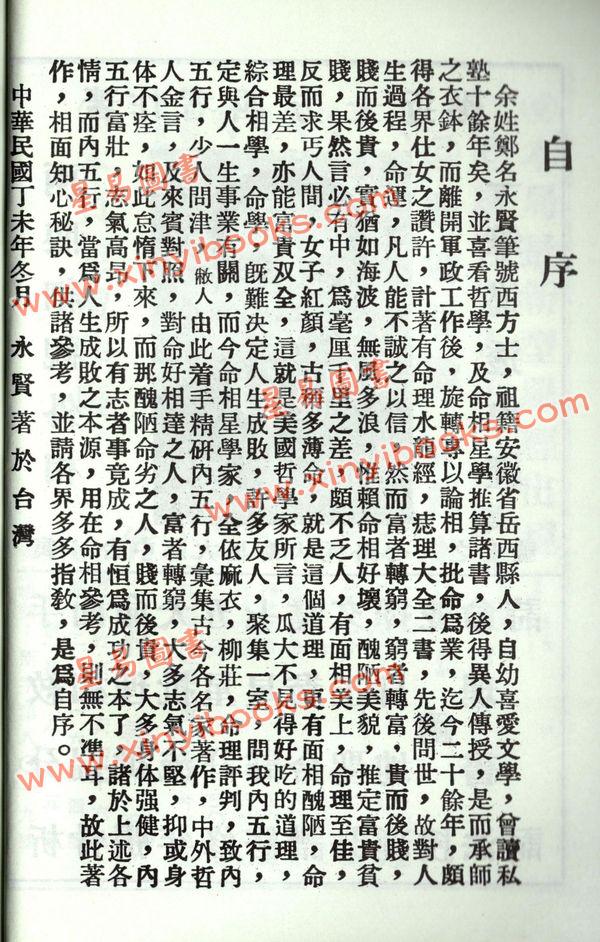 自序
余姓鄭名永賢筆號西方士，祖籍安徽省岳西縣人，自幼喜愛文學，曾讀私
塾十餘年矣，並喜看哲學，及命相星學推算諸書，後得異人傳授，是而承師
之衣鉢，而離開軍政工作後，旋轉專以論相，批命爲業，迄今二十餘年，頗
得各界仕女之讚許，計著有命理水鏡經，痣理大全二書，先後問世，故對人
生過程，命運，凡人能不誠之以信，然而富者轉窮，窮者轉富，貴而後賤，
賤而後貴，富猶如海波，無風多浪，惟賴命相好壞，醜陋美貌，推定富貴貧
賤，果然言必有中，爲毫厘千里之差，頗不乏人，有面相美上，命理至佳，
反而求丐人間，女子紅顏，古稱多薄命，就是這個道理，更有面相醜陋，命
理最差，亦能富貴双全，這就是美國哲學家所言，瓜大不見得好吃的道理，
綜合相學，命學，旣難決定人生成敗，許多友人，聚集一室，問我內五行，
定與人一生事業有關，而今命相星學家，全依麻衣，柳莊，命理評判，致內
五行，少人問津，敝人由此着手精研內五行，彙集古今各名家著作，中外哲
人金言，及來賓對照，對命好相達之人，富者轉窮，大多志氣不堅，抑或身
体不痊，如此怠惰下來，而那醜陋命劣之人，賤而後貴，大多身体强健，內
五行富壯，志氣高昂，所以有志者事竟成，有恒爲成功之本了，諸於上述各
情，而內五行，當爲人生成敗之本源，用在命相參考，則無不準斗，故此著
作，相面知心秘訣，供諸參考，並請各界多多指敎，是爲自序。
中華民國丁未年冬月 永賢著於台灣
星易圖書
www.xinyibooks.com
星易圖書
www.xinyibooks.com
星易圖書
www.xinyibooks.com